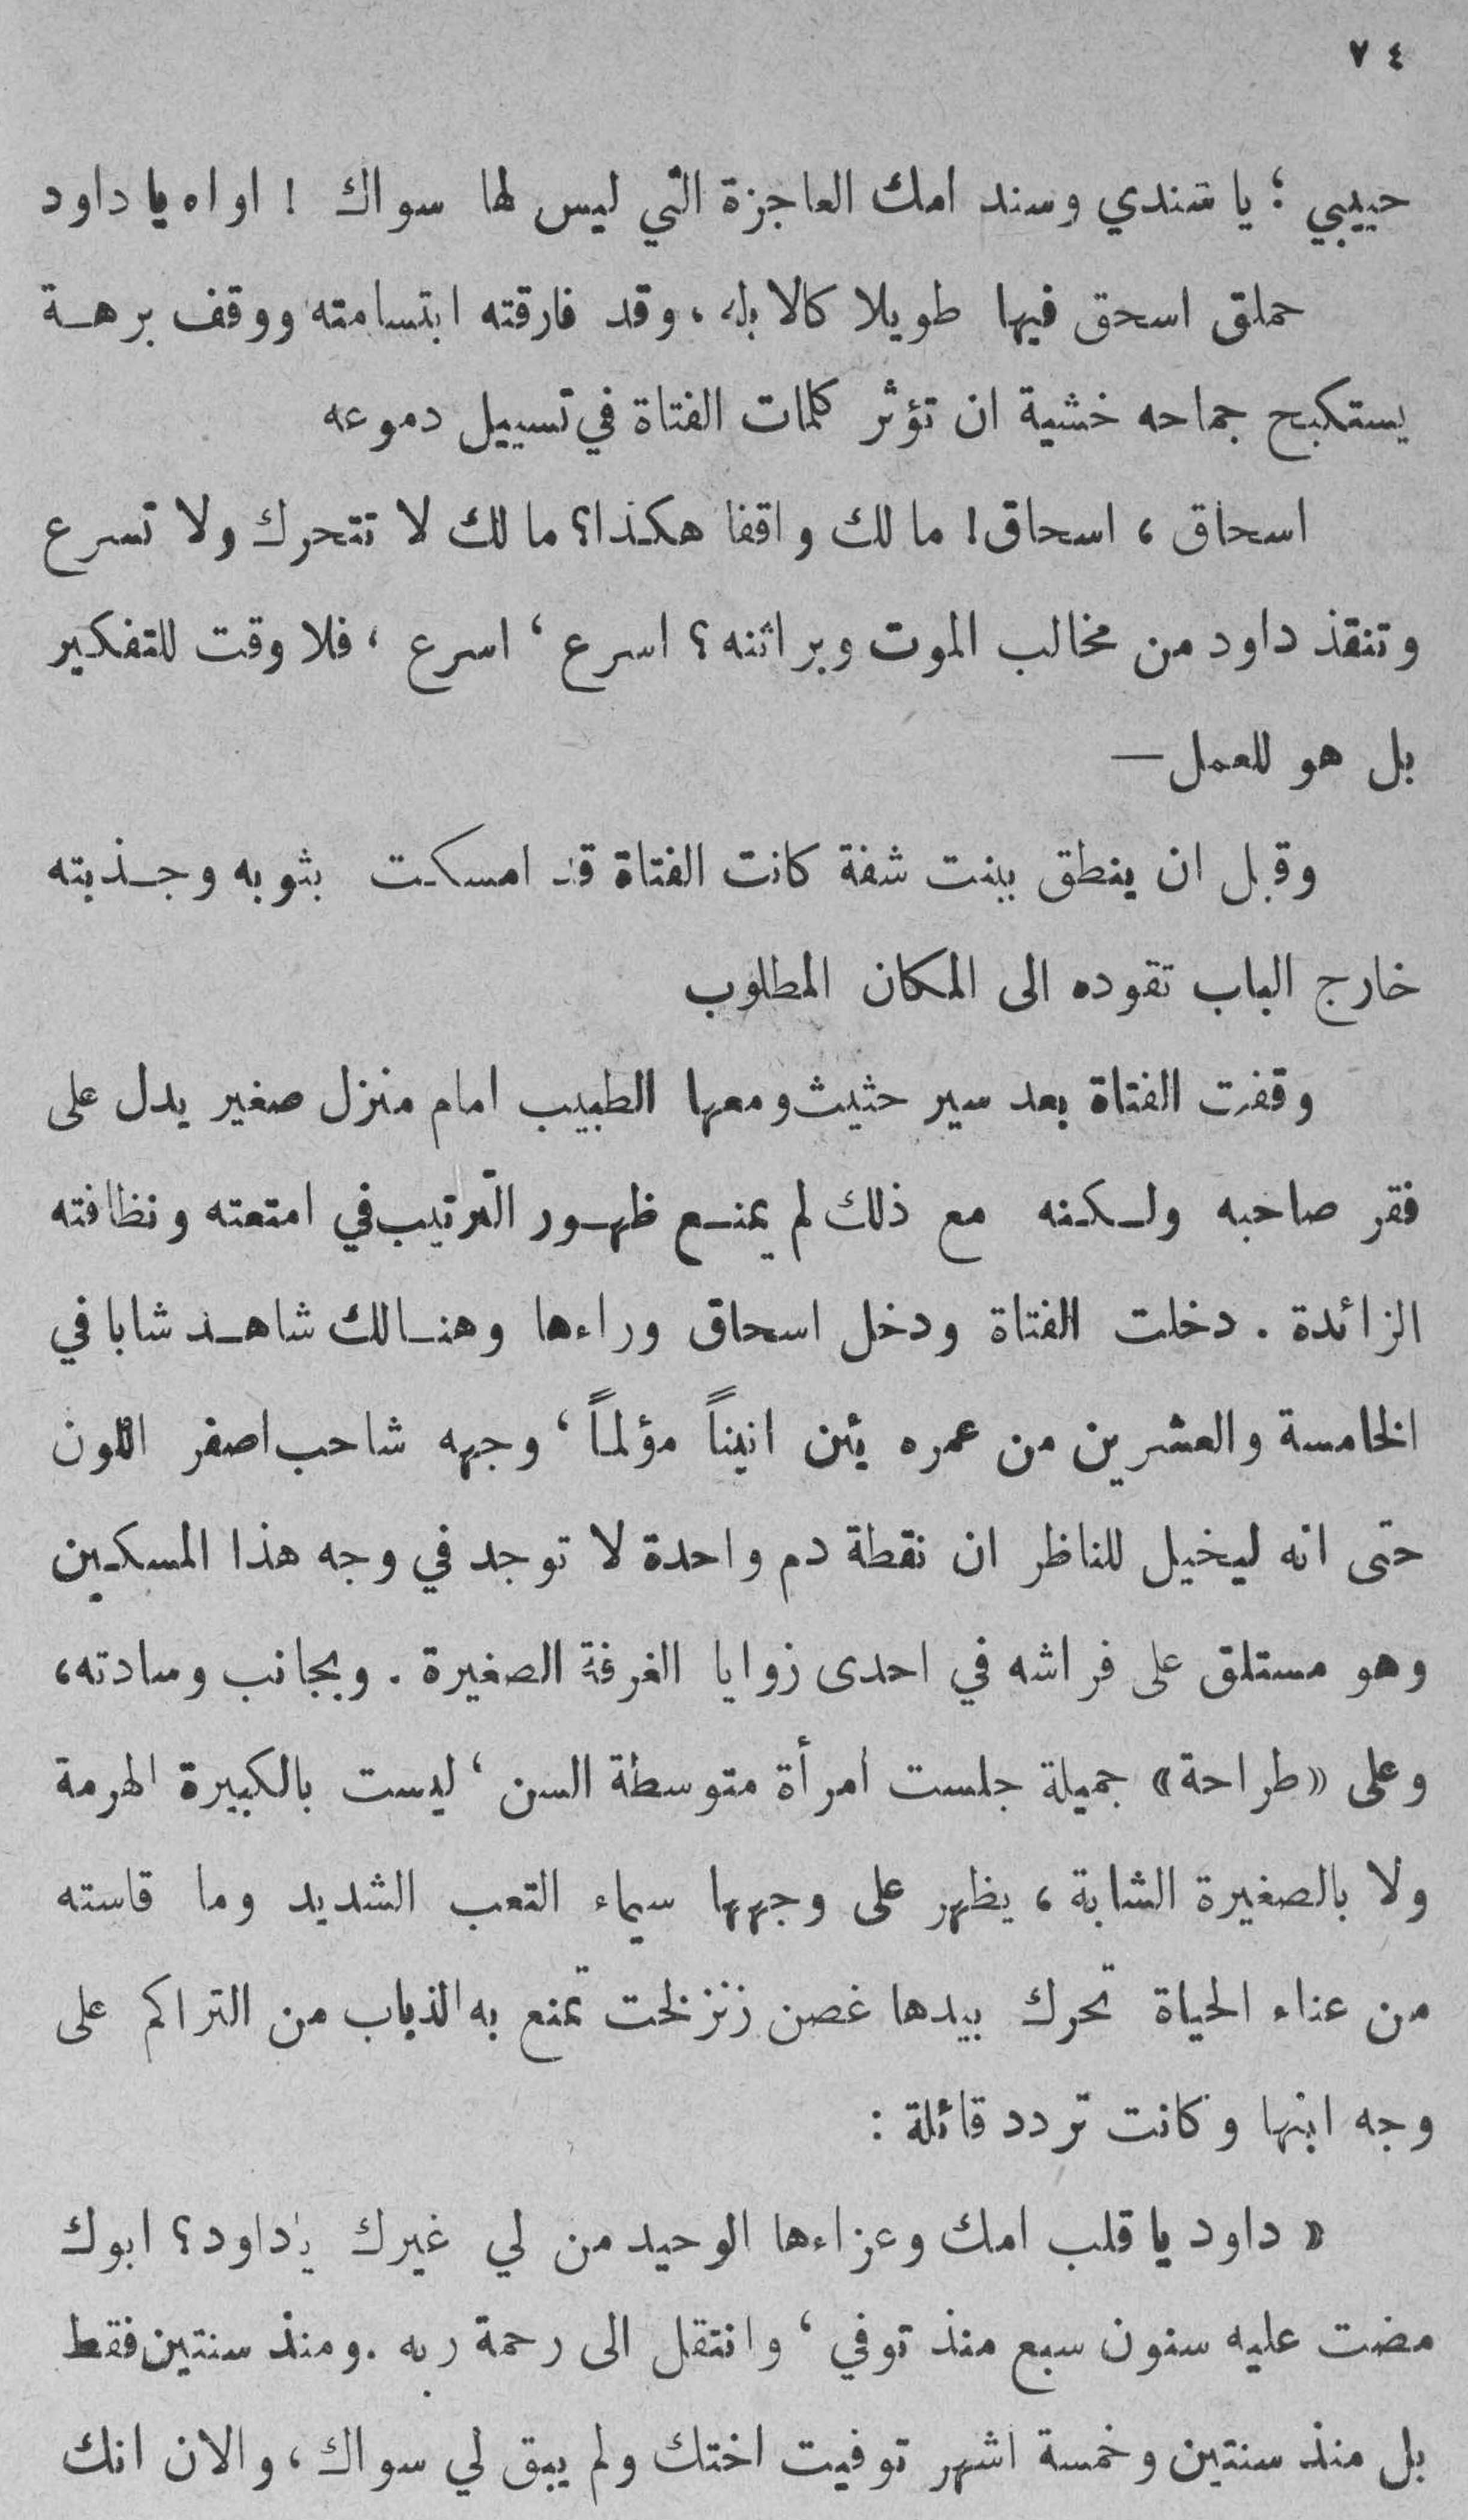 ٧٤
حبيبي ؛ يا سندي وسند امك العاجزة التي ليس لها سواك ! اواه يا داود
حملق اسحق فيها طويلا كالابله ، وقد فارقته ابتسامته ووقف برهة
يستكبح جماحه خشية ان تؤثر كلمات الفتاة في تسييل دموعه
اسحاق ، اسحاق ! ما لك واقفا هكذا؟ ما لك لا تتحرك ولا تسرع
وتنقذ داود من مخالب الموت وبراثنه ؟ اسرع ‘ اسرع ، فلا وقت للتفكير
بل هو للعمل —
وقبل ان ينطق ببنت شفة كانت الفتاة قد امسكت بثوبه وجذبته
خارج الباب تقوده الى المكان المطلوب
وقفت الفتاة بعد سير حثيث ومعها الطبيب امام منزل صغير يدل على
فقر صاحبه ولكنه مع ذلك لم يمنع ظهور الترتيب في امتعته ونظافته
الزائدة . دخلت الفتاة ودخل اسحاق وراءها وهنالك شاهد شابا في
الخامسة والعشرين من عمره يئن انيناً مؤلماً ‘ وجهه شاحب اصفر اللون
حتى انه ليخيل للناظر ان نقطة دم واحدة لا توجد في وجه هذا المسكين
وهو مستلق على فراشه في احدى زوايا الغرفة الصغيرة . وبجانب وسادته ،
وعلى «طراحة» جميلة جلست امرأة متوسطة السن ‘ ليست بالكبيرة الهرمة
ولا بالصغيرة الشابة ، يظهر على وجهها سيماء التعب الشديد وما قاسته
من عناء الحياة تحرك بيدها غصن زنزلخت تمنع به الذباب من التراكم على
وجه ابنها وكانت تردد قائلة :
« داود يا قلب امك وعزاءها الوحيد من لي غيرك يا داود ؟ ابوك
مضت عليه سنون سبع منذ توفي ‘ وانتقل الى رحمة ربه . ومنذ سنتين فقط
بل منذ سنتين وخمسة اشهر توفيت اختك ولم يبق لي سواك ، والان انك